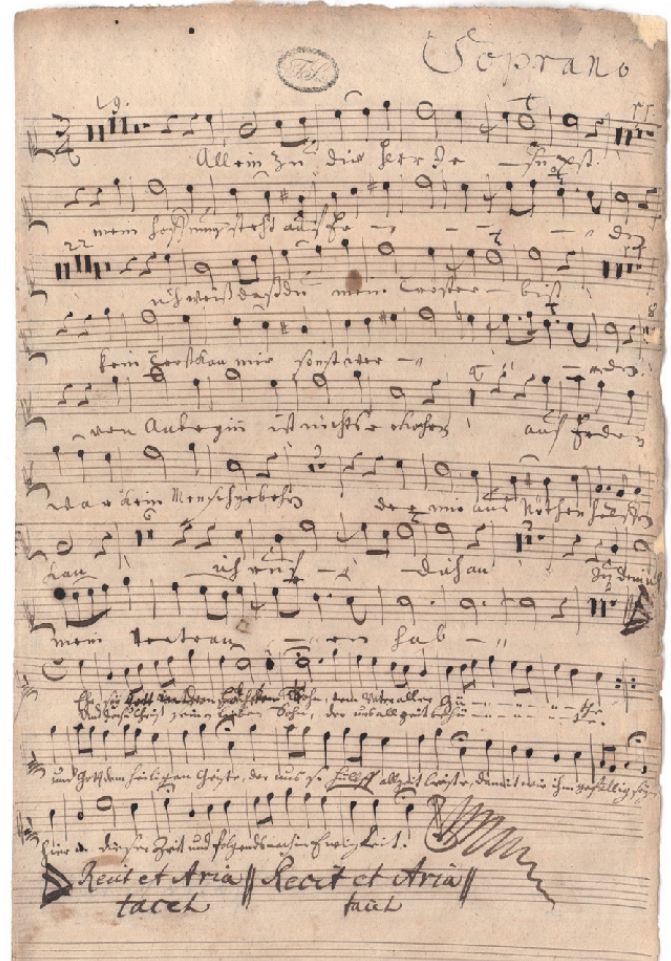 Soprano
19.
Allein zu dir Herr Je - su Christ.
mein Hoffnung steht auf Er - - - - den
22
ich weiß daß du mein Tröster - bist
kein Trost kan mir sonst wer - - - - den.
von Anbegin ist nichts erkohrn auf Erden
war kein Mensch gebohrn der mir aus Nöthen helffen
kan ich ruff - dich an zu dem ich
mein Vertraun - - en hab - "
Ehr sey Gott in dem höchsten Thron, dem Vater aller Gü - - - - te
Und Jesu Christ seinem liebsten Sohn, der uns allzeit behü - - - - te.
und Gott dem heiligen Geiste, der uns sein Hülff allzeit leiste, damit wir ihm gefällig seyn,
hier in dieser Zeit und folgends in Ewigkeit.
Recit et Aria || Recit et Aria ||
tacet tacet